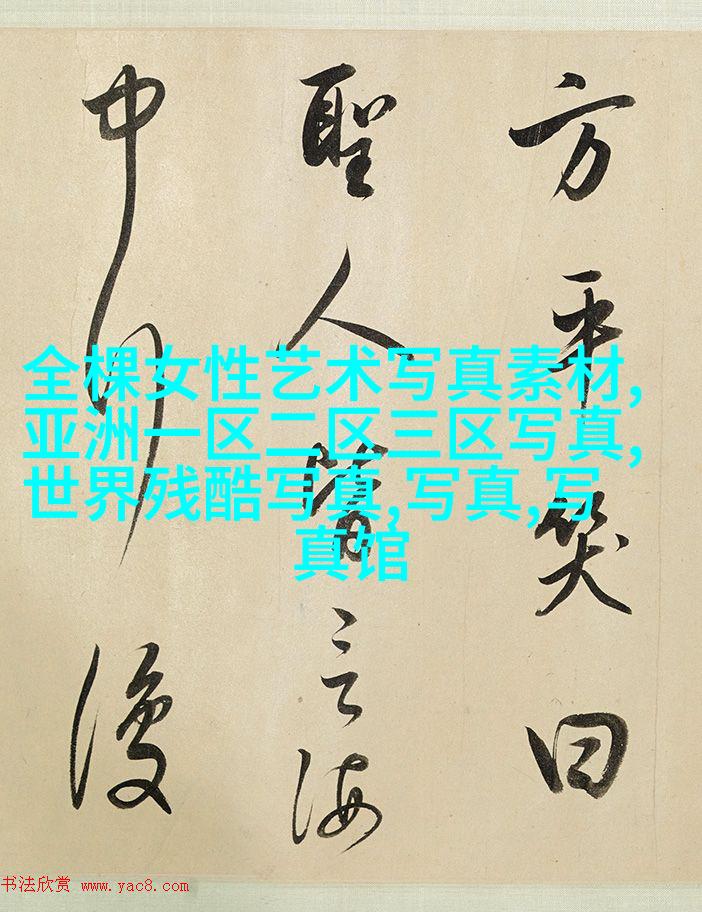 方平笑曰
聖人皆言海
中行復
全棵女性艺术写真素材,
亚洲一区二区三区写真,
世界残酷写真,写真,写
真馆
书法欣赏 www.yac8.com